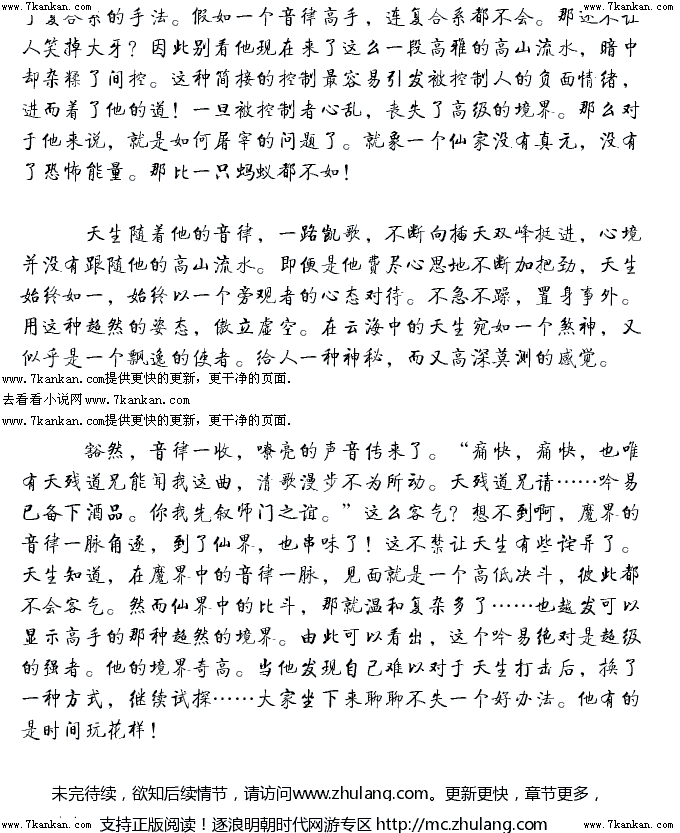 www.7kankan.com www.7kankan.com
了复合系的手法。假如一个音律高手，连复合系都不会。那还不让
人笑掉大牙？因此别看他现在来了这么一段高雅的高山流水，暗中
却杂糅了间控。这种简接的控制最容易引发被控制人的负面情绪，
进而着了他的道！一旦被控制者心乱，丧失了高级的境界。那么对
于他来说，就是如何屠宰的问题了。就象一个仙家没有真元，没有
了恐怖能量。那比一只蚂蚁都不如！
天生随着他的音律，一路凯歌，不断向插天双峰挺进，心境
并没有跟随他的高山流水。即便是他费尽心思地不断加把劲，天生
始终如一，始终以一个旁观者的心态对待。不急不躁，置身事外。
用这种超然的姿态，傲立虚空。在云海中的天生宛如一个煞神，又
似乎是一个飘逸的使者。给人一种神秘，而又高深莫测的感觉。
www.7kankan.com提供更快的更新，更干净的页面.
去看看小说网www.7kankan.com
www.7kankan.com提供更快的更新，更干净的页面.
豁然，音律一收，嘹亮的声音传来了。“痛快，痛快，也唯
有天残道兄能闻我这曲，清歌漫步不为所动。天残道兄请……吟易
已备下酒品。你我先叙师门之谊。”这么客气？想不到啊，魔界的
音律一脉角逐，到了仙界，也串味了！这不禁让天生有些诧异了。
天生知道，在魔界中的音律一脉，见面就是一个高低决斗，彼此都
不会客气。然而仙界中的比斗，那就温和复杂多了……也越发可以
显示高手的那种超然的境界。由此可以看出，这个吟易绝对是超级
的强者。他的境界奇高。当他发现自己难以对于天生打击后，换了
一种方式，继续试探……大家坐下来聊聊不失一个好办法。他有的
是时间玩花样！
未完待续，欲知后续情节，请访问www.zhulang.com。更新更快，章节更多，
www.7kankan.com 支持正版阅读！逐浪明朝时代网游专区 http://mc.zhulang.com www.7kankan.com